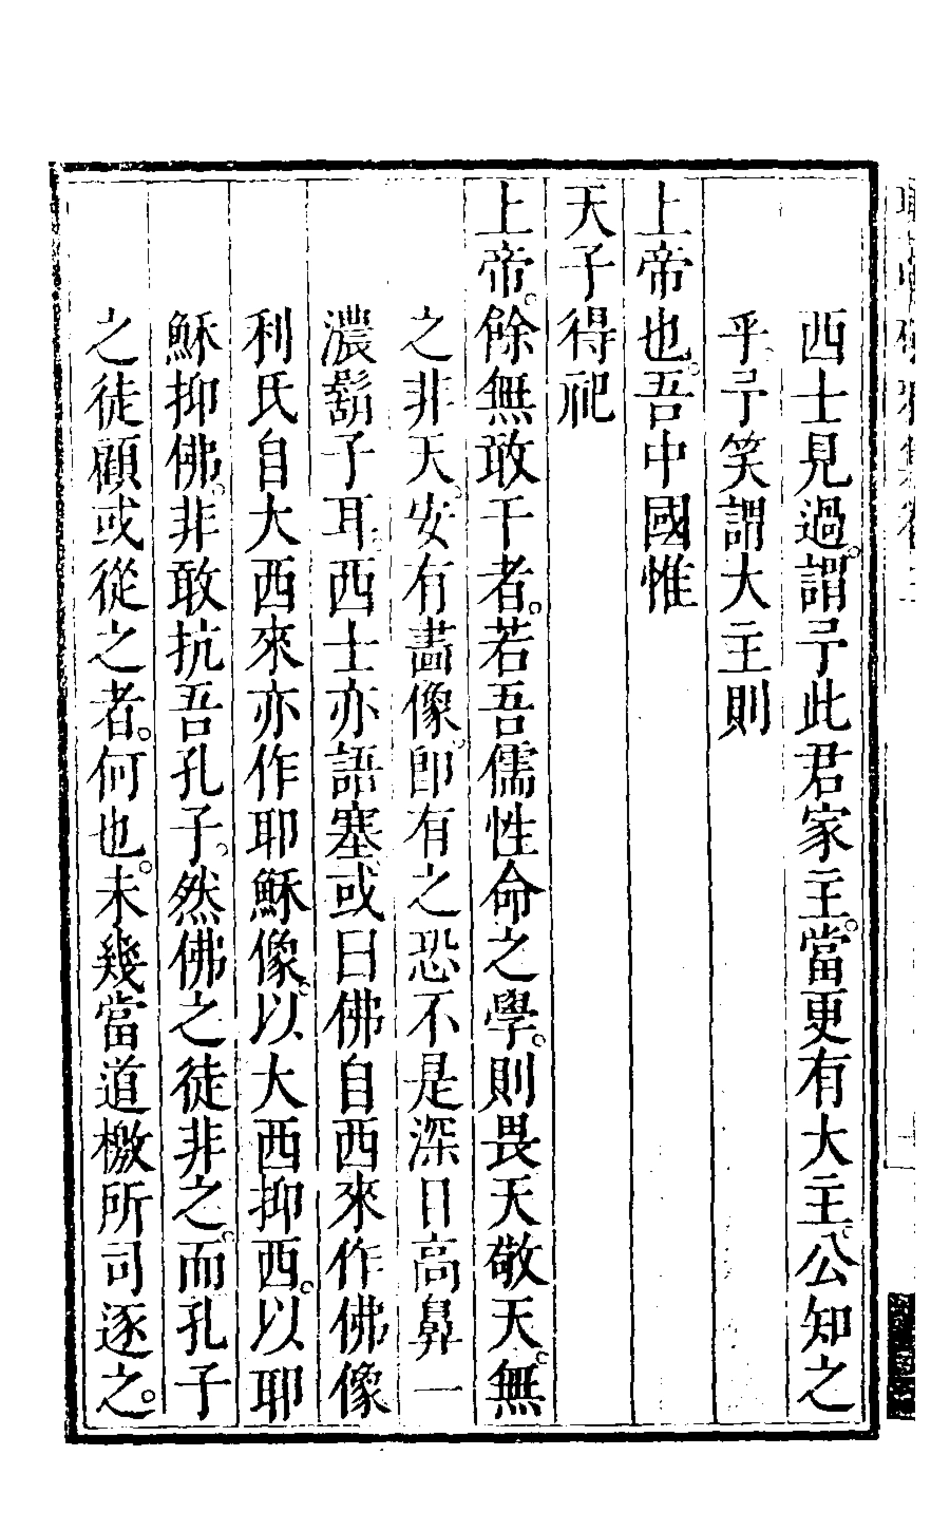 西士見過。謂予此君家主。當更有大主。公知之
乎。予笑謂大主則
上帝也。吾中國惟
天子得祀
上帝。餘無敢干者。若吾儒性命之學。則畏天敬天。無
之非天。安有畵像。卽有之恐不是深目高鼻一
濃鬍子耳。西士亦語塞或曰佛自西來作佛像
利氏自大西來亦作耶穌像。以大西抑西。以耶
穌抑佛。非敢抗吾孔子。然佛之徒非之。而孔子
之徒顧或從之者。何也。未幾當道檄所司逐之。